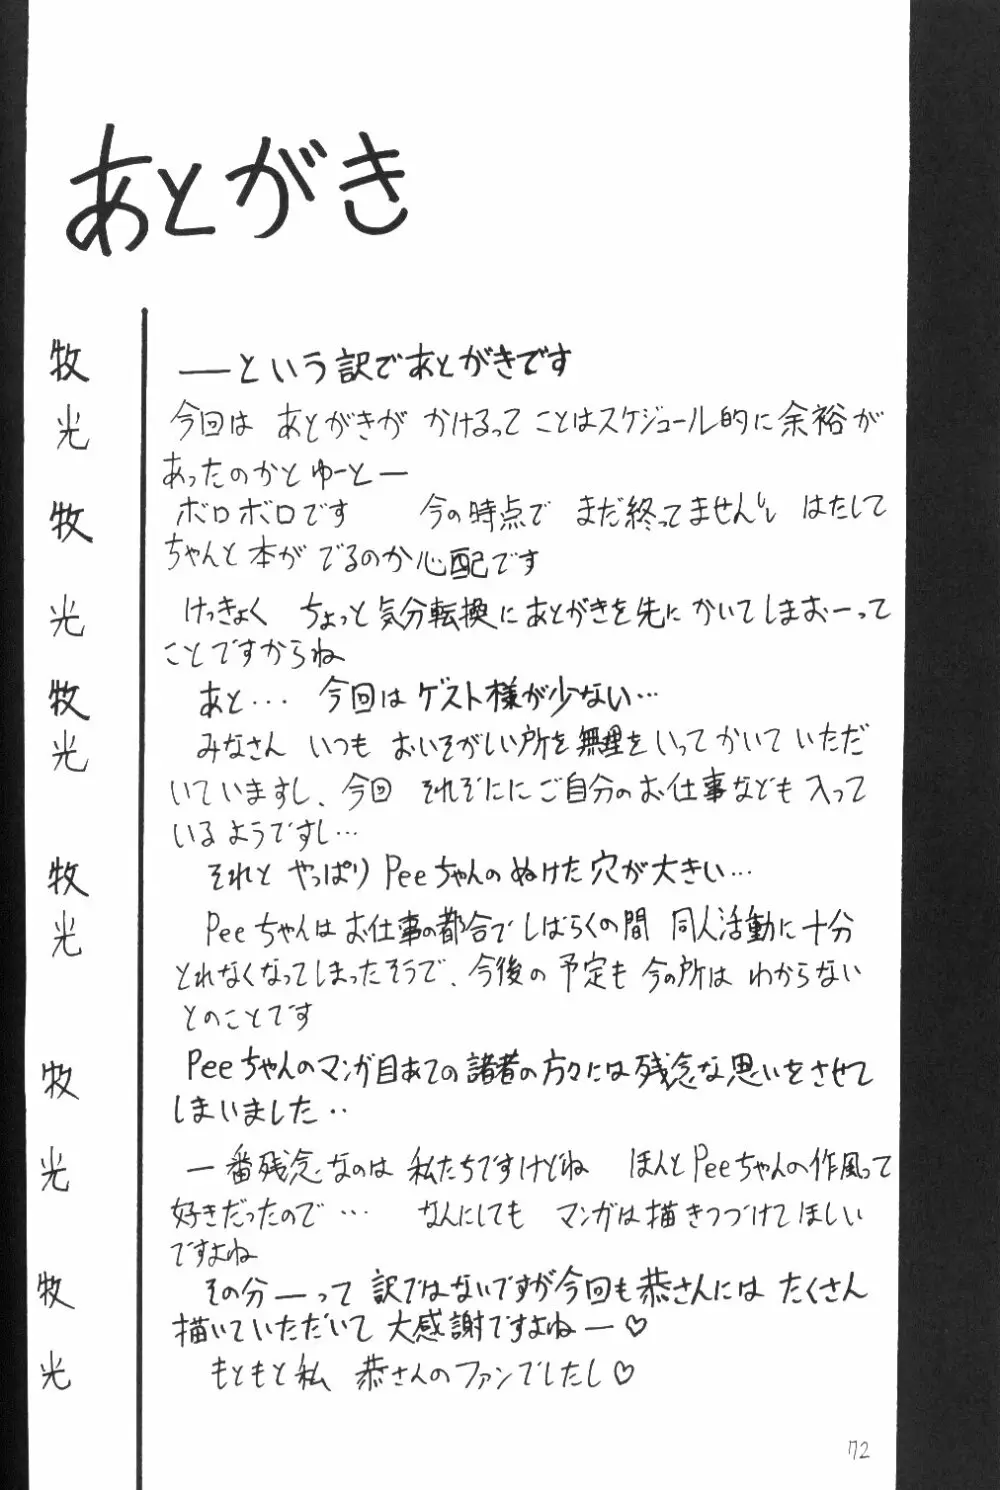 あとがき
牧 ——という訳であとがきです
光 今回は あとがきが かけるって ことはスケジュール的に余裕が
あったのかと ゆーとー
牧 ボロボロです 今の時点で まだ終ってませんし はたして
ちゃんと本が でるのか心配です
光 けっきょく ちょっと気分転換にあとがきを先に かいてしまおーって
ことですからね
牧 あと… 今回はゲスト様が少ない…
光 みなさん いつも おいそがしい所を無理をいってかいていただ
いていますし、今回 それぞににご自分のお仕事なども入って
いるようですし…
牧 それと やっぱり Peeちゃんのぬけた穴が大きい…
光 Peeちゃんはお仕事の都合でしばらくの間 同人活動に十分
とれなくなってしまったそうで、今後の予定も今の所は わからない
とのことです
牧 Peeちゃんのマンガ目あての諸者の方々には残念な思いをさせて
しまいました‥
光 一番残念なのは 私たちですけどね ほんとPeeちゃんの作風って
好きだったので… なんにしても マンガは描きつづけてほしい
ですよね
牧 その分ーって 訳ではないですが今回も恭さんには たくさん
描いていただいて 大感謝ですよねー♡
光 もともと私 恭さんのファンでしたし♡
72